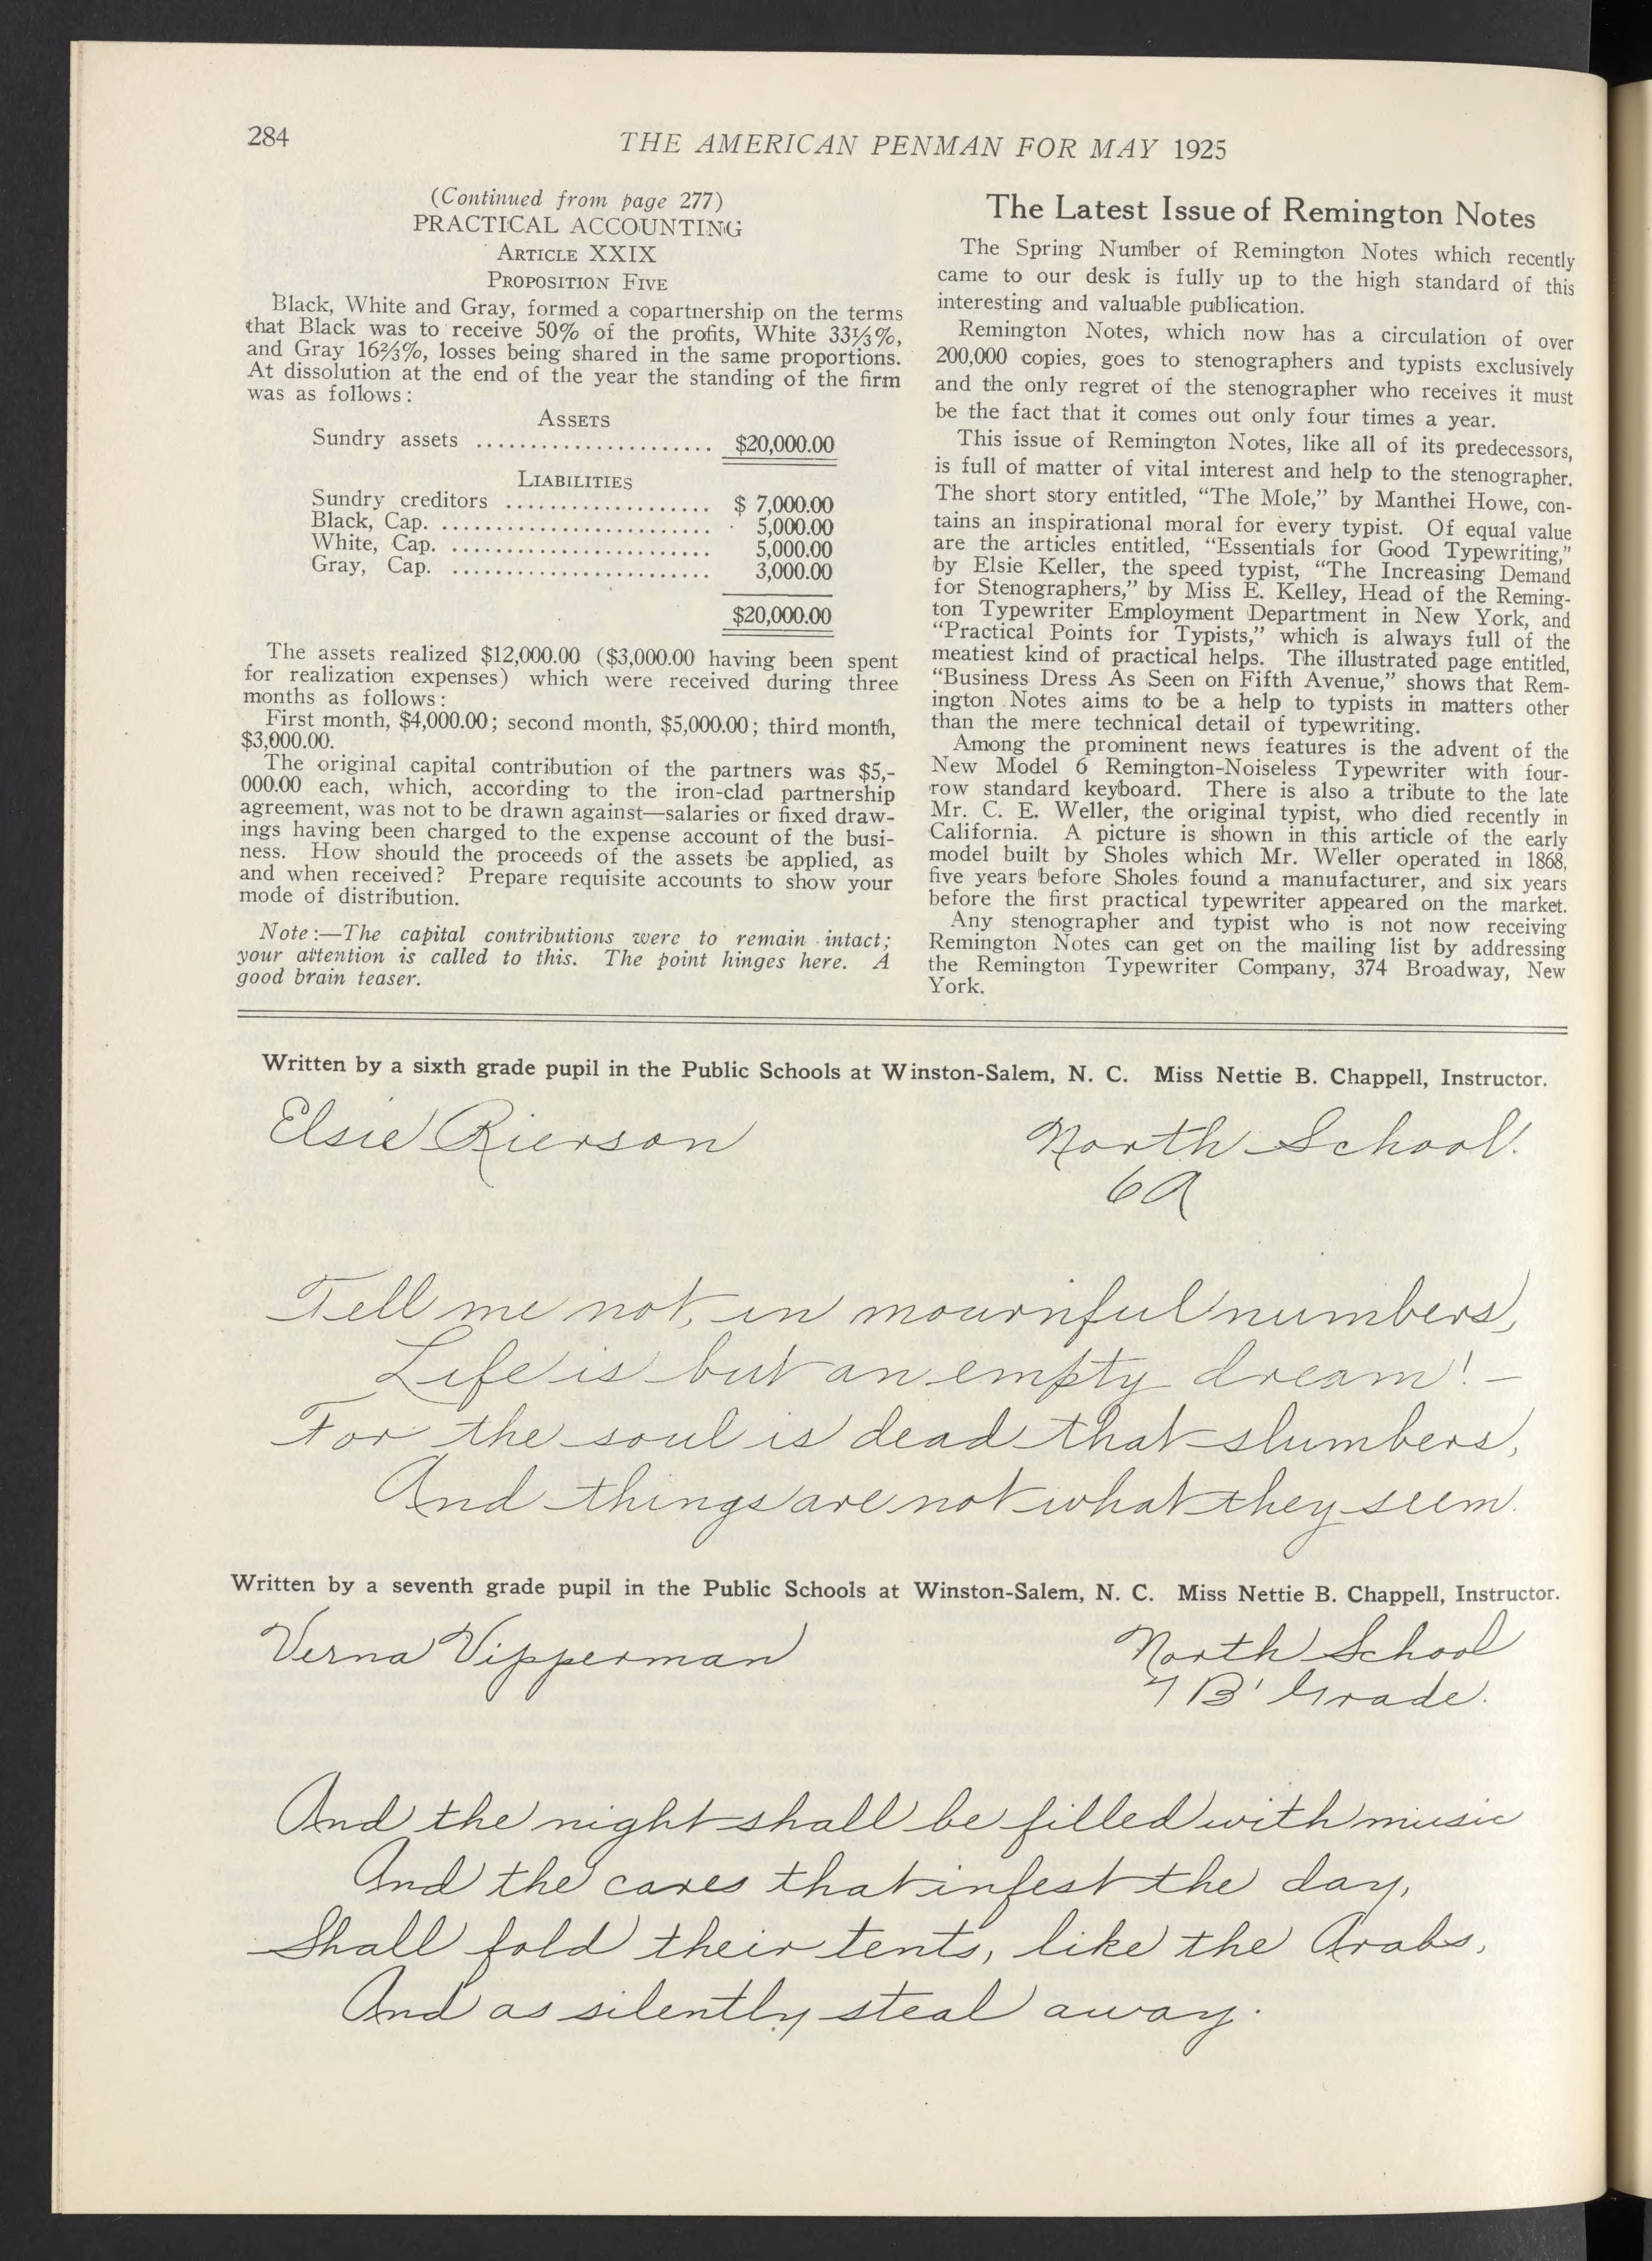 284
THE AMERICAN PENMAN FOR MAY 1925
(Continued from page 277)
PRACTICAL ACCOUNTING
ARTICLE XXIX
PROPOSITION FIVE
Black, White and Gray, formed a copartnership on the terms
that Black was to receive 50% of the profits, White 33⅓%,
and Gray 16⅔%, losses being shared in the same proportions.
At dissolution at the end of the year the standing of the firm
was as follows:
ASSETS
Sundry assets ...................... $20,000.00
LIABILITIES
Sundry creditors ................... $ 7,000.00
Black, Cap. ......................... 5,000.00
White, Cap. ........................ 5,000.00
Gray, Cap. ........................ 3,000.00
$20,000.00
The assets realized $12,000.00 ($3,000.00 having been spent
for realization expenses) which were received during three
months as follows:
First month, $4,000.00; second month, $5,000.00; third month,
$3,000.00.
The original capital contribution of the partners was $5,-
000.00 each, which, according to the iron-clad partnership
agreement, was not to be drawn against—salaries or fixed draw-
ings having been charged to the expense account of the busi-
ness. How should the proceeds of the assets be applied, as
and when received? Prepare requisite accounts to show your
mode of distribution.
Note:—The capital contributions were to remain intact;
your attention is called to this. The point hinges here. A
good brain teaser.
The Latest Issue of Remington Notes
The Spring Number of Remington Notes which recently
came to our desk is fully up to the high standard of this
interesting and valuable publication.
Remington Notes, which now has a circulation of over
200,000 copies, goes to stenographers and typists exclusively
and the only regret of the stenographer who receives it must
be the fact that it comes out only four times a year.
This issue of Remington Notes, like all of its predecessors,
is full of matter of vital interest and help to the stenographer.
The short story entitled, “The Mole,” by Manthei Howe, con-
tains an inspirational moral for every typist. Of equal value
are the articles entitled, “Essentials for Good Typewriting,”
by Elsie Keller, the speed typist, “The Increasing Demand
for Stenographers,” by Miss E. Kelley, Head of the Reming-
ton Typewriter Employment Department in New York, and
“Practical Points for Typists,” which is always full of the
meatiest kind of practical helps. The illustrated page entitled,
“Business Dress As Seen on Fifth Avenue,” shows that Rem-
ington Notes aims to be a help to typists in matters other
than the mere technical detail of typewriting.
Among the prominent news features is the advent of the
New Model 6 Remington-Noiseless Typewriter with four-
row standard keyboard. There is also a tribute to the late
Mr. C. E. Weller, the original typist, who died recently in
California. A picture is shown in this article of the early
model built by Sholes which Mr. Weller operated in 1868,
five years before Sholes found a manufacturer, and six years
before the first practical typewriter appeared on the market.
Any stenographer and typist who is not now receiving
Remington Notes can get on the mailing list by addressing
the Remington Typewriter Company, 374 Broadway, New
York.
Written by a sixth grade pupil in the Public Schools at Winston-Salem, N. C. Miss Nettie B. Chappell, Instructor.
Elsie Rierson North School.
6A
Tell me not, in mournful numbers,
Life is but an empty dream! –
For the soul is dead that slumbers,
And things are not what they seem.
Written by a seventh grade pupil in the Public Schools at Winston-Salem, N. C. Miss Nettie B. Chappell, Instructor.
Verna Vipperman North School
7 B' Grade.
And the night shall be filled with music
And the cares that infest the day,
Shall fold their tents, like the Arabs,
And as silently steal away.